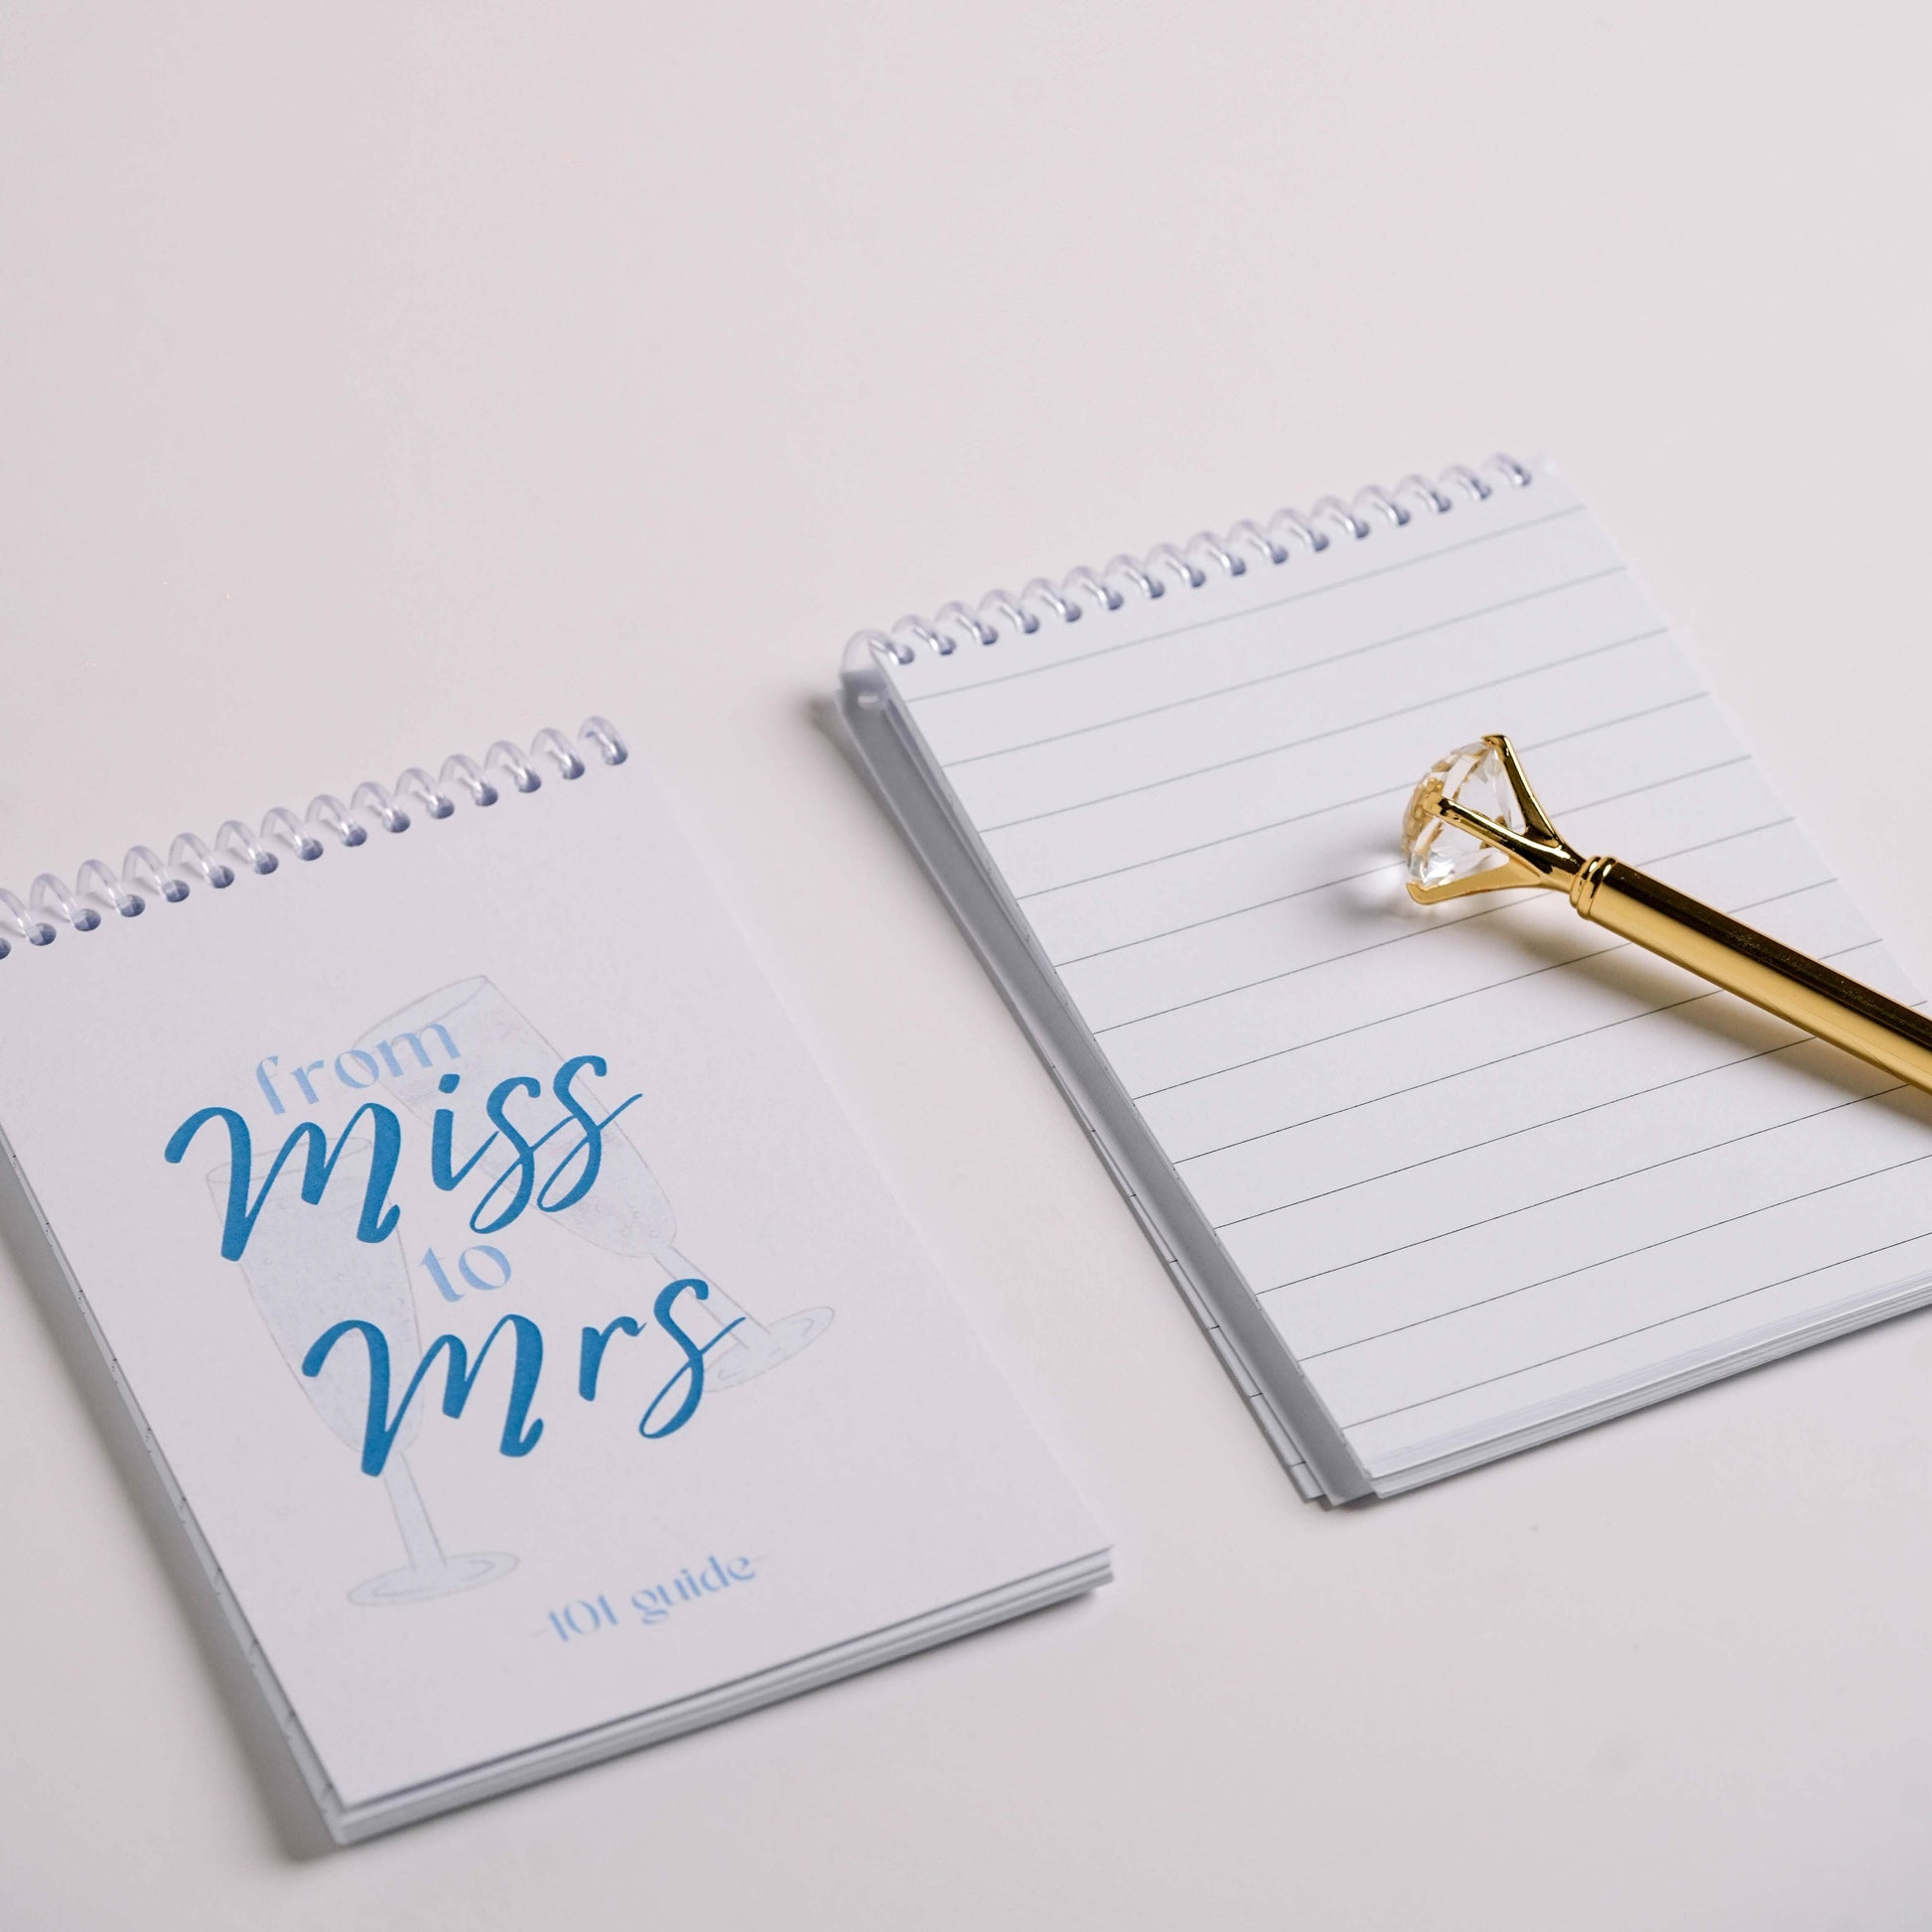 from
Miss
to
Mrs
101 guide